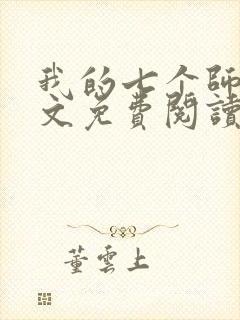 我的七个師
文免費閱讀
董雲上